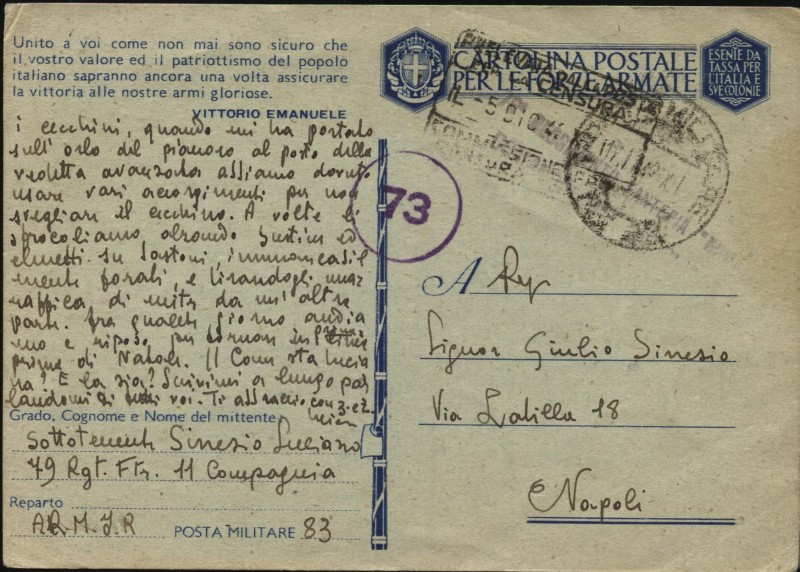 Unito a voi come non mai sono sicuro che
il vostro valore ed il patriottismo del popolo
italiano sapranno ancora una volta assicurare
la vittoria alle nostre armi gloriose.
VITTORIO EMANUELE
i cecchini, quando mi ha portato
sull'orlo del pianoro al posto della
vedetta avanzata abbiamo dovuto
usare vari accorgimenti per non
svegliare il cecchino. A volte li
alzando bustine ed
elmetti su bastoni,
mente forati, e tirandogli una
raffica di mitra da un'altra
parte. fra qualche giorno andia
mo a riposo, per tornare in linea
prima di Natale. Come sta Lucia
na? E la zia? Scrivimi a lungo par
landomi di tutti voi. Ti abbraccio con
Grado, Cognome e Nome del mittente
Sottotenente Sinesio Luciano
79 Rgt. Ftr. 11 Compagnia
Reparto
A.R.M.I.R
POSTA MILITARE 83
CARTOLINA POSTALE
PER LE FORZE ARMATE
ESENTE DA
TASSA PER
L'ITALIA E
SUE COLONIE
CENSURA
COMMISSIONE
73
A
Signor Giulio Sinesio
Via Latilla 18
Napoli